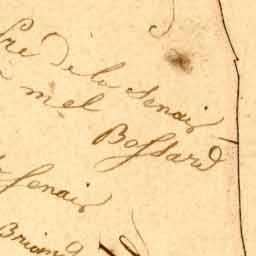 Pré de la Senais
mel
Bossard
Senais
Briand